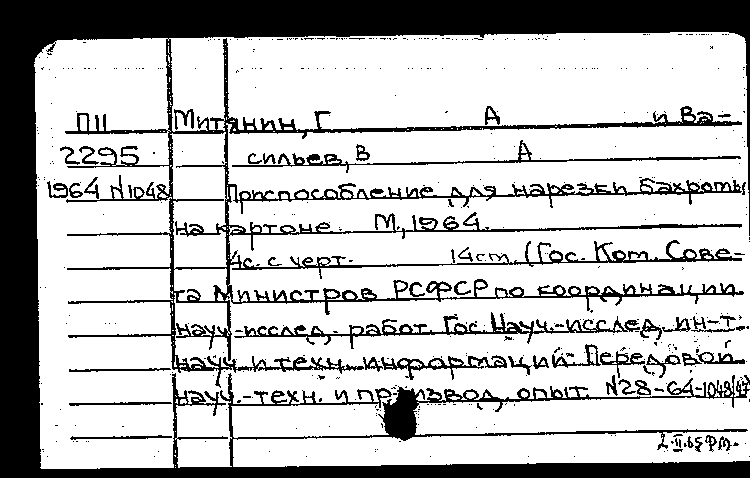 П11 Митянин, Г А и Ва-
2295 сильев, В А
1964 N1048 Приспособление для нарезки бахромы
на картоне. М., 1964.
4с. с черт. 14cm. (Гос. Ком. Сове-
та Министров РСФСР по координации
науч.-исслед. работ. Гос. Науч.-исслед. ин-т.
науч. и техн. информации. Передовой
науч.-техн. и производ. опыт. N28-64-1048/